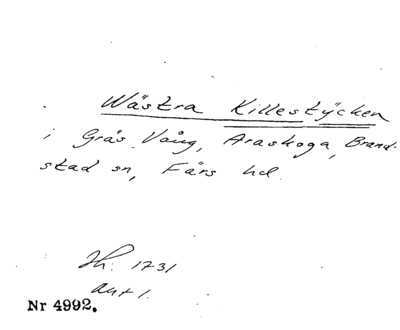 Wästra Killestÿcken
i Gräs Vång, Araskoga, Brand-
stad sn, Färs hd.
Jh. 1731
akt 1.
Nr 4992.